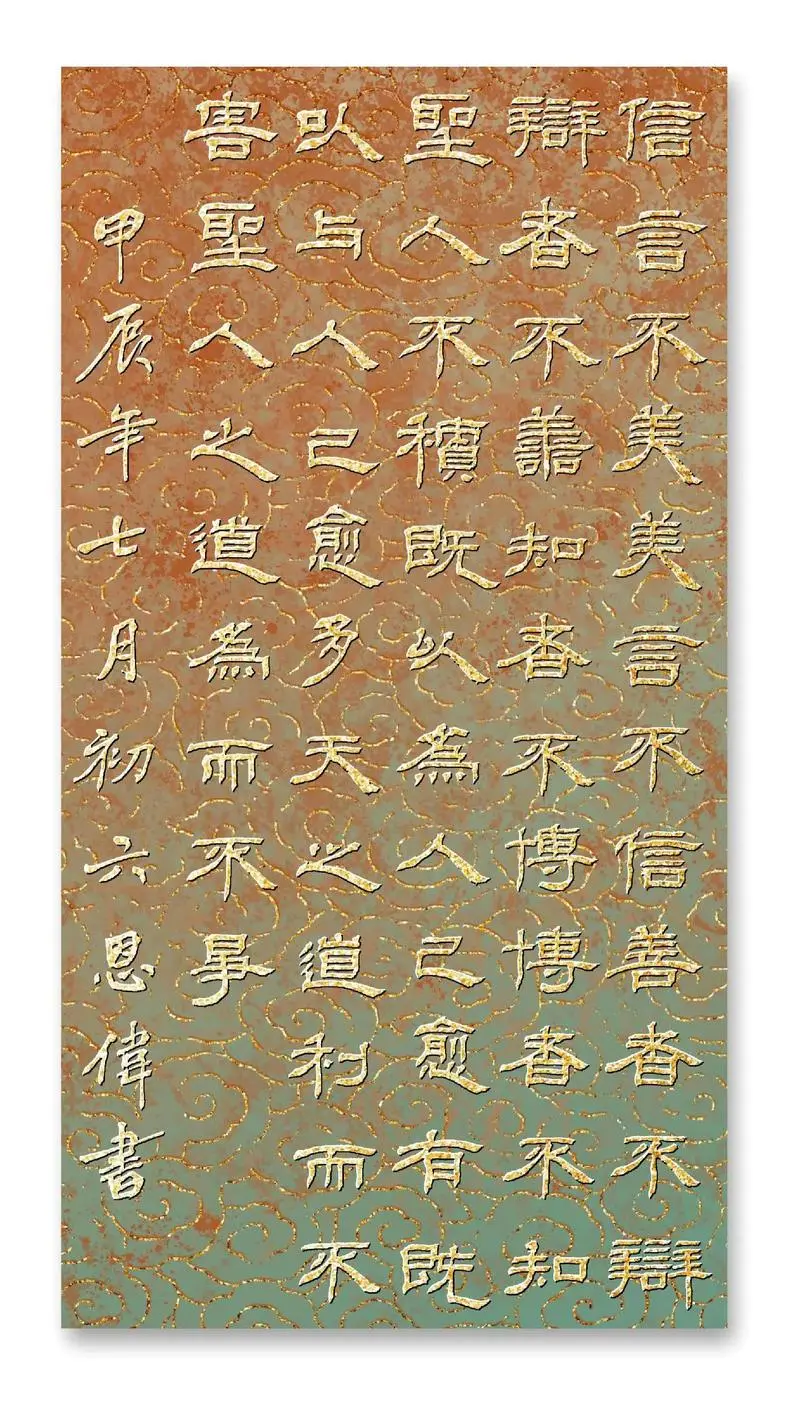 信言不美美言不信善者不辯
辯者不善知者不博博者不知
聖人不積既以為人己愈有既
以与人己愈多天之道利而不
害聖人之道為而不爭
甲辰年七月初六恩偉書